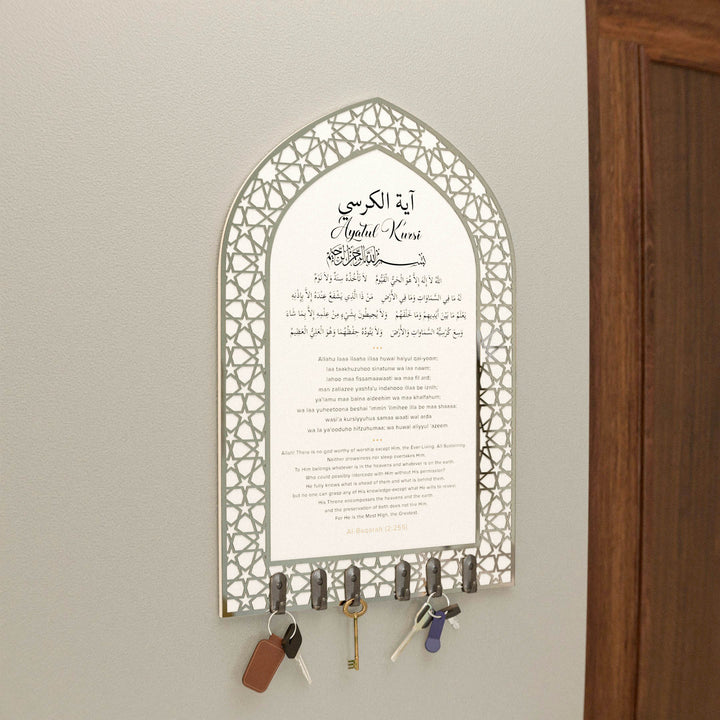 آية الكرسي
Ayatul Kursi
بسم الله الرحمن الرحيم
اللَّهُ لاَ إِلَهَ إِلاَّ هُوَ الْحَيُّ الْقَيُّومُ لاَ تَأْخُذُهُ سِنَةٌ وَلاَ نَوْمٌ
لَهُ مَا فِي السَّمَاوَاتِ وَمَا فِي الأَرْضِ مَن ذَا الَّذِي يَشْفَعُ عِنْدَهُ إِلاَّ بِإِذْنِهِ
يَعْلَمُ مَا بَيْنَ أَيْدِيهِمْ وَمَا خَلْفَهُمْ وَلاَ يُحِيطُونَ بِشَيْءٍ مِنْ عِلْمِهِ إِلاَّ بِمَا شَاءَ
وَسِعَ كُرْسِيُّهُ السَّمَاوَاتِ وَالأَرْضَ وَلاَ يَئُودُهُ حِفْظُهُمَا وَهُوَ الْعَلِيُّ الْعَظِيمُ
Allahu laaa ilaaha illaa huwal haiyul qai-yoom;
laa taakhuzuhoo sinatunw wa laa nawm;
lahoo maa fissamaawaati wa maa fil ard;
man zallazee yashfa'u indahooo illaa be iznih;
ya'lamu maa baina aideehim wa maa khalfahum;
wa laa yuheetoona beshai 'immin 'ilmihee illa be maa shaaaa;
wasi'a kursiyyuhus samaa waati wal arda
wa la ya'ooduho hifzuhumaa; wa huwal aliyyul 'azeem
Allah! There is no god worthy of worship except Him, the Ever-Living, All-Sustaining.
Neither drowsiness nor sleep overtakes Him.
To Him belongs whatever is in the heavens and whatever is on the earth.
Who could possibly intercede with Him without His permission?
He fully knows what is ahead of them and what is behind them,
but no one can grasp any of His knowledge-except what He wills to reveal.
His Throne encompasses the heavens and the earth,
and the preservation of both does not tire Him.
For He is the Most High, the Greatest.
Al-Baqarah (2:255)